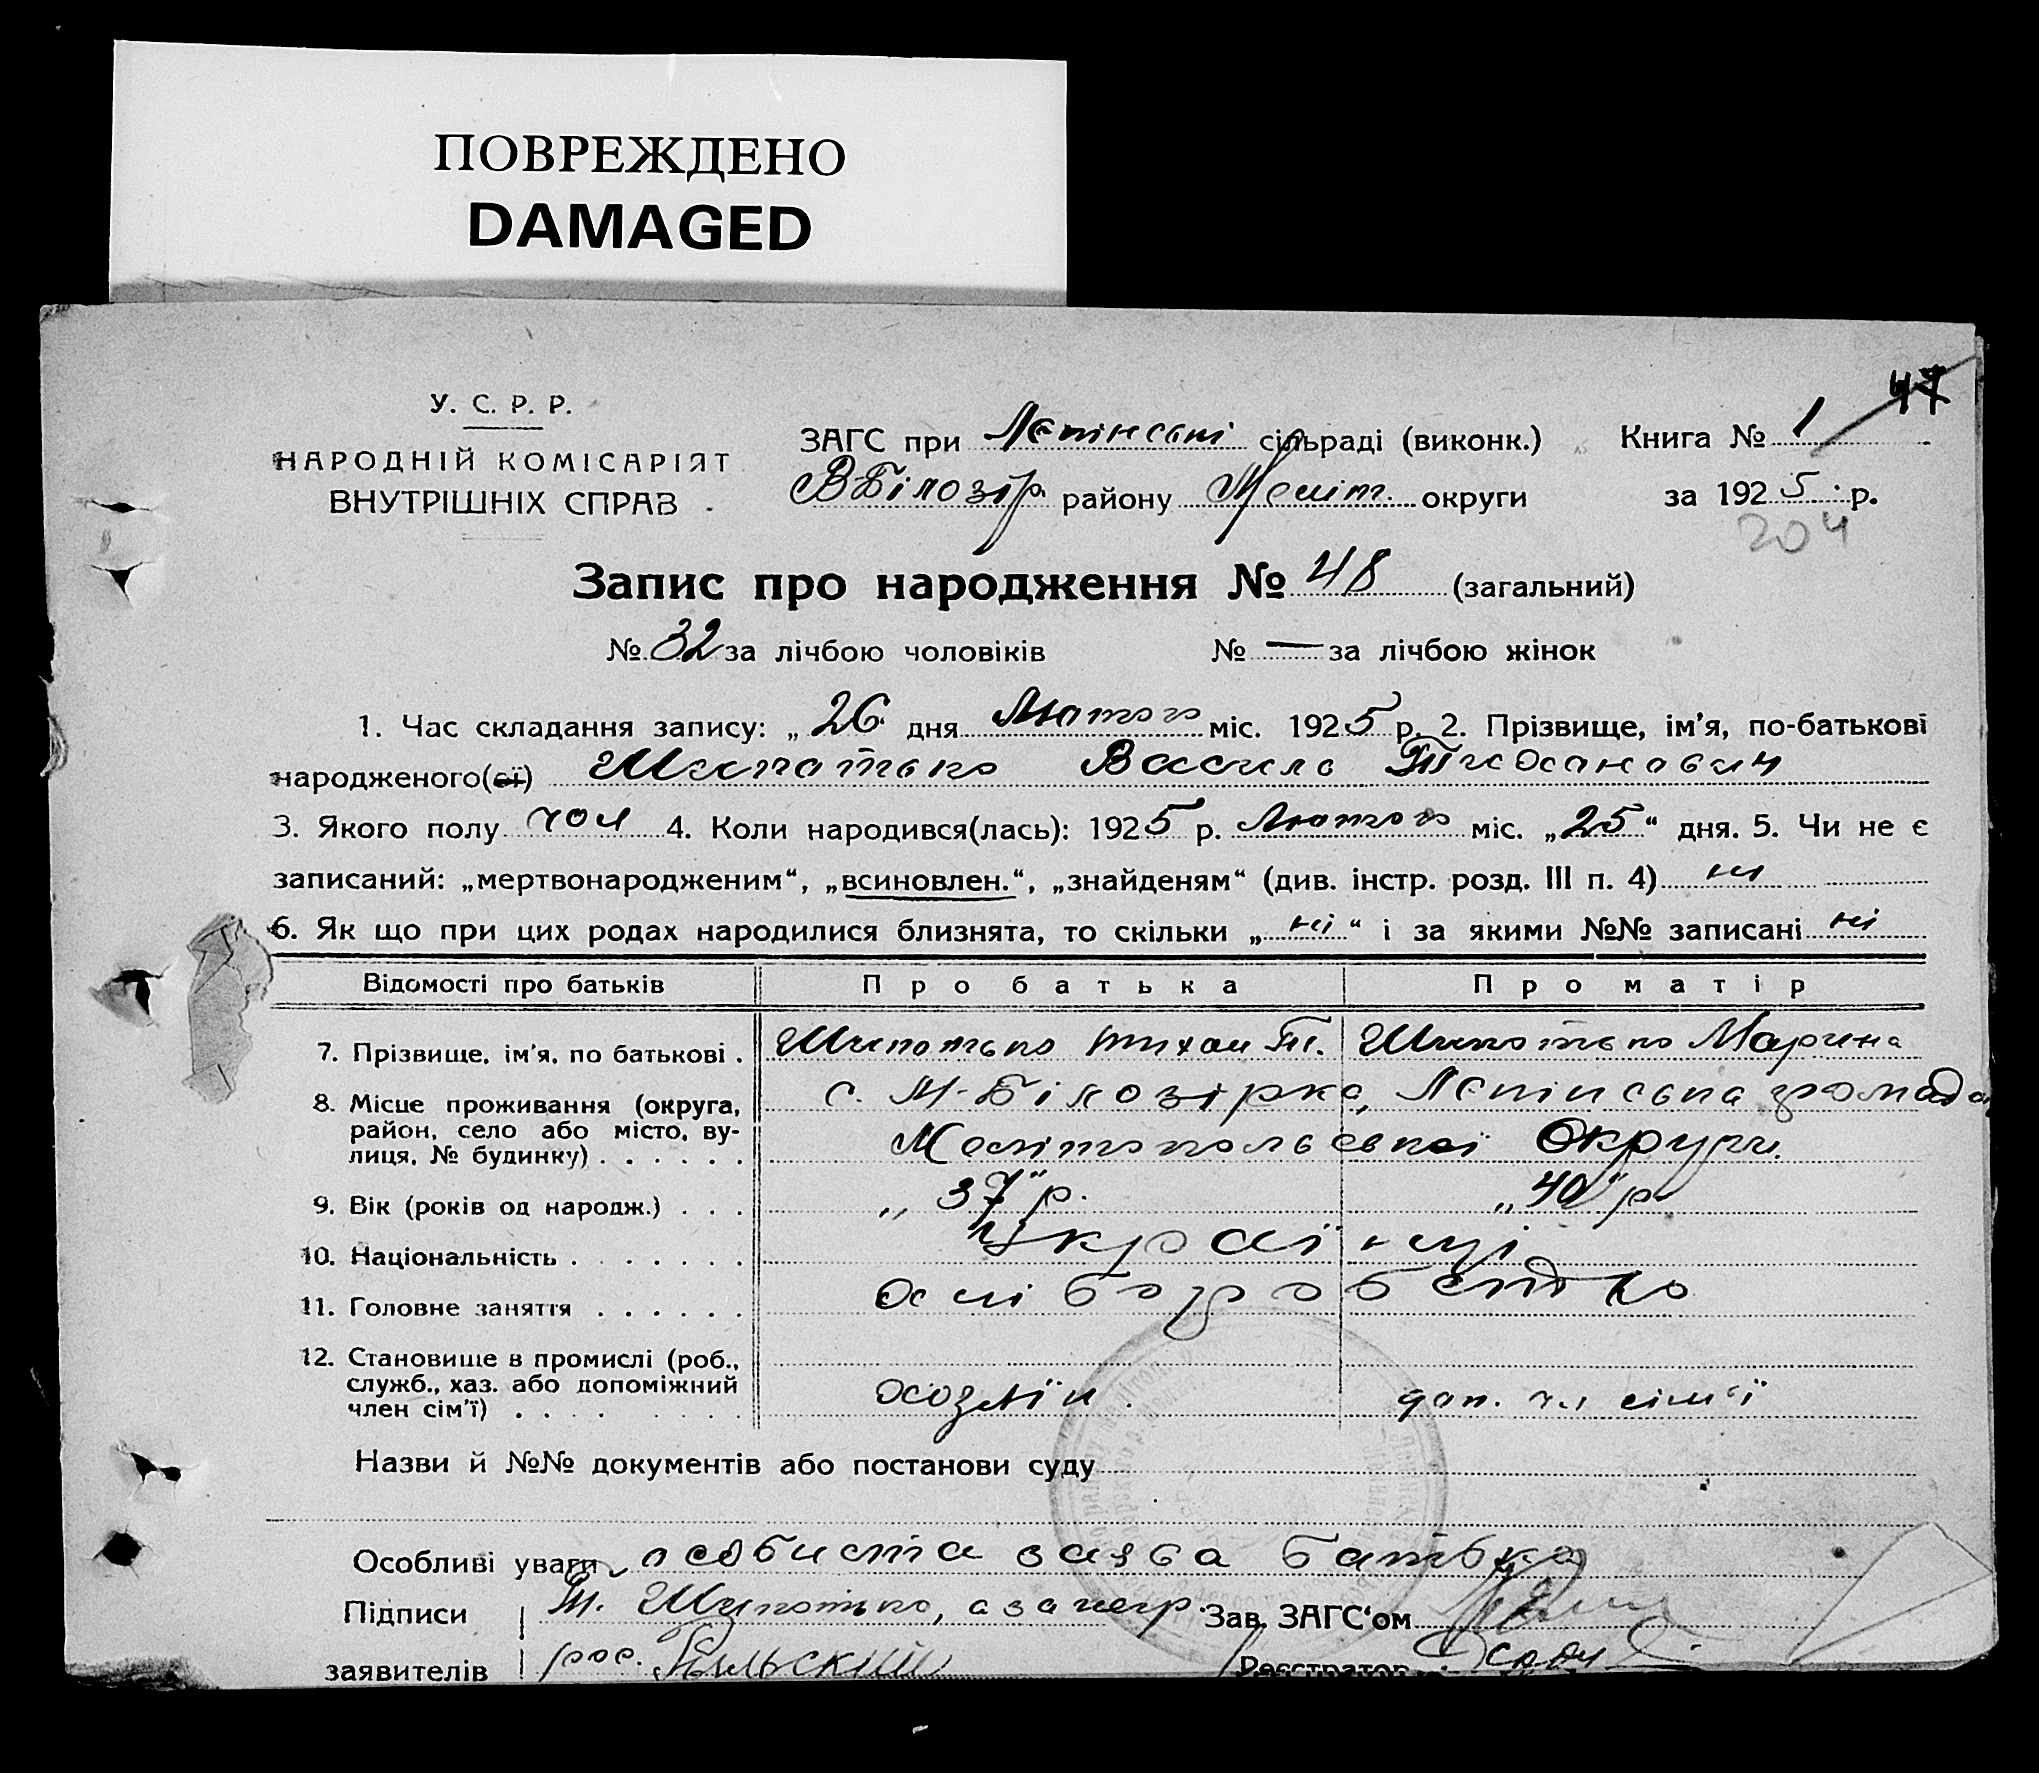 ПОВРЕЖДЕНО
DAMAGED
47
У. С. Р. Р.
НАРОДНІЙ КОМІСАРІЯТ
ВНУТРІШНІХ СПРАВ
ЗАГС при Лєпінські сільраді (виконк.) Книга № 1
ВБілозір. району Меліт. округи за 1925 р.
204
Запис про народження № 48 (загальний)
№ 32 за лічбою чоловіків № — за лічбою жінок
1. Час складання запису: „26 дня Лютого міс. 1925 р. 2. Прізвище, ім'я, по-батькові
народженого(ої) Шипотько Василь
3. Якого полу чол 4. Коли народився(лась): 1925 р. Лютого міс. „25“ дня. 5. Чи не є
записаний: „мертвонародженим“, „всиновлен.“, „знайденям“ (див. інстр. розд. III п. 4) ні
6. Як що при цих родах народилися близнята, то скільки „ні“ і за якими №№ записані ні
Відомості про батьків Про батька Про матір
7. Прізвище, ім'я, по батькові . Шипотько Тихон Шипотько Марина
8. Місце проживання (округа, с. М-Білозірка, Лєпінська громада
район, село або місто, ву-
лиця, № будинку) . . . . . . Мелітопольської Округи.
9. Вік (років од народж.) . . . „37“ р. „40“ р.
10. Національність . . . . . . . Українці
11. Головне заняття . . . . . .
12. Становище в промислі (роб.,
служб., хаз. або допоміжний
член сім'ї) . . . . . . . . . дап. чл сім'ї
Назви й №№ документів або постанови суду
Особливі уваги особиста заява батька
Підписи Т. Шипотько, а за негр. Зав. ЗАГС'ом
заявителів рос. Реєстратор